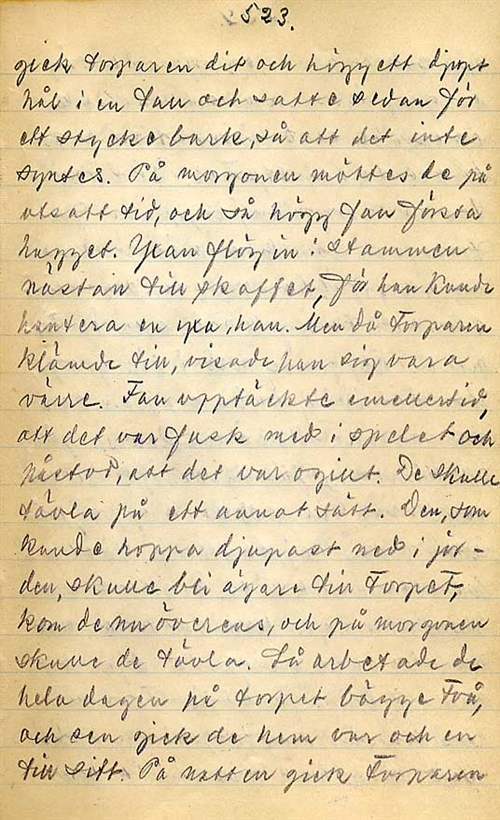 523.
gick torparen dit och högg ett djupt
hål i en tall och satte sedan för
ett stycke bark, så att det inte
syntes. På morgonen möttes de på
utsatt tid, och så högg fan första
hugget. Yxan flög in i stammen
nästan till skaftet, för han kunde
hantera en yxa, han. Men då torparen
klämde till, visade han sig vara
värre. Fan upptäckte emellertid,
att det var fusk med i spelet och
påstod, att det var ogillt. De skulle
tävla på ett annat sätt. Den, som
kunde hoppa djupast ned i jor-
den, skulle bli ägare till torpet,
kom de nu överens, och på morgonen
skulle de tävla. Så arbetade de
hela dagen på torpet bägge två,
och sen gick de hem var och en
till sitt. På natten gick torparen